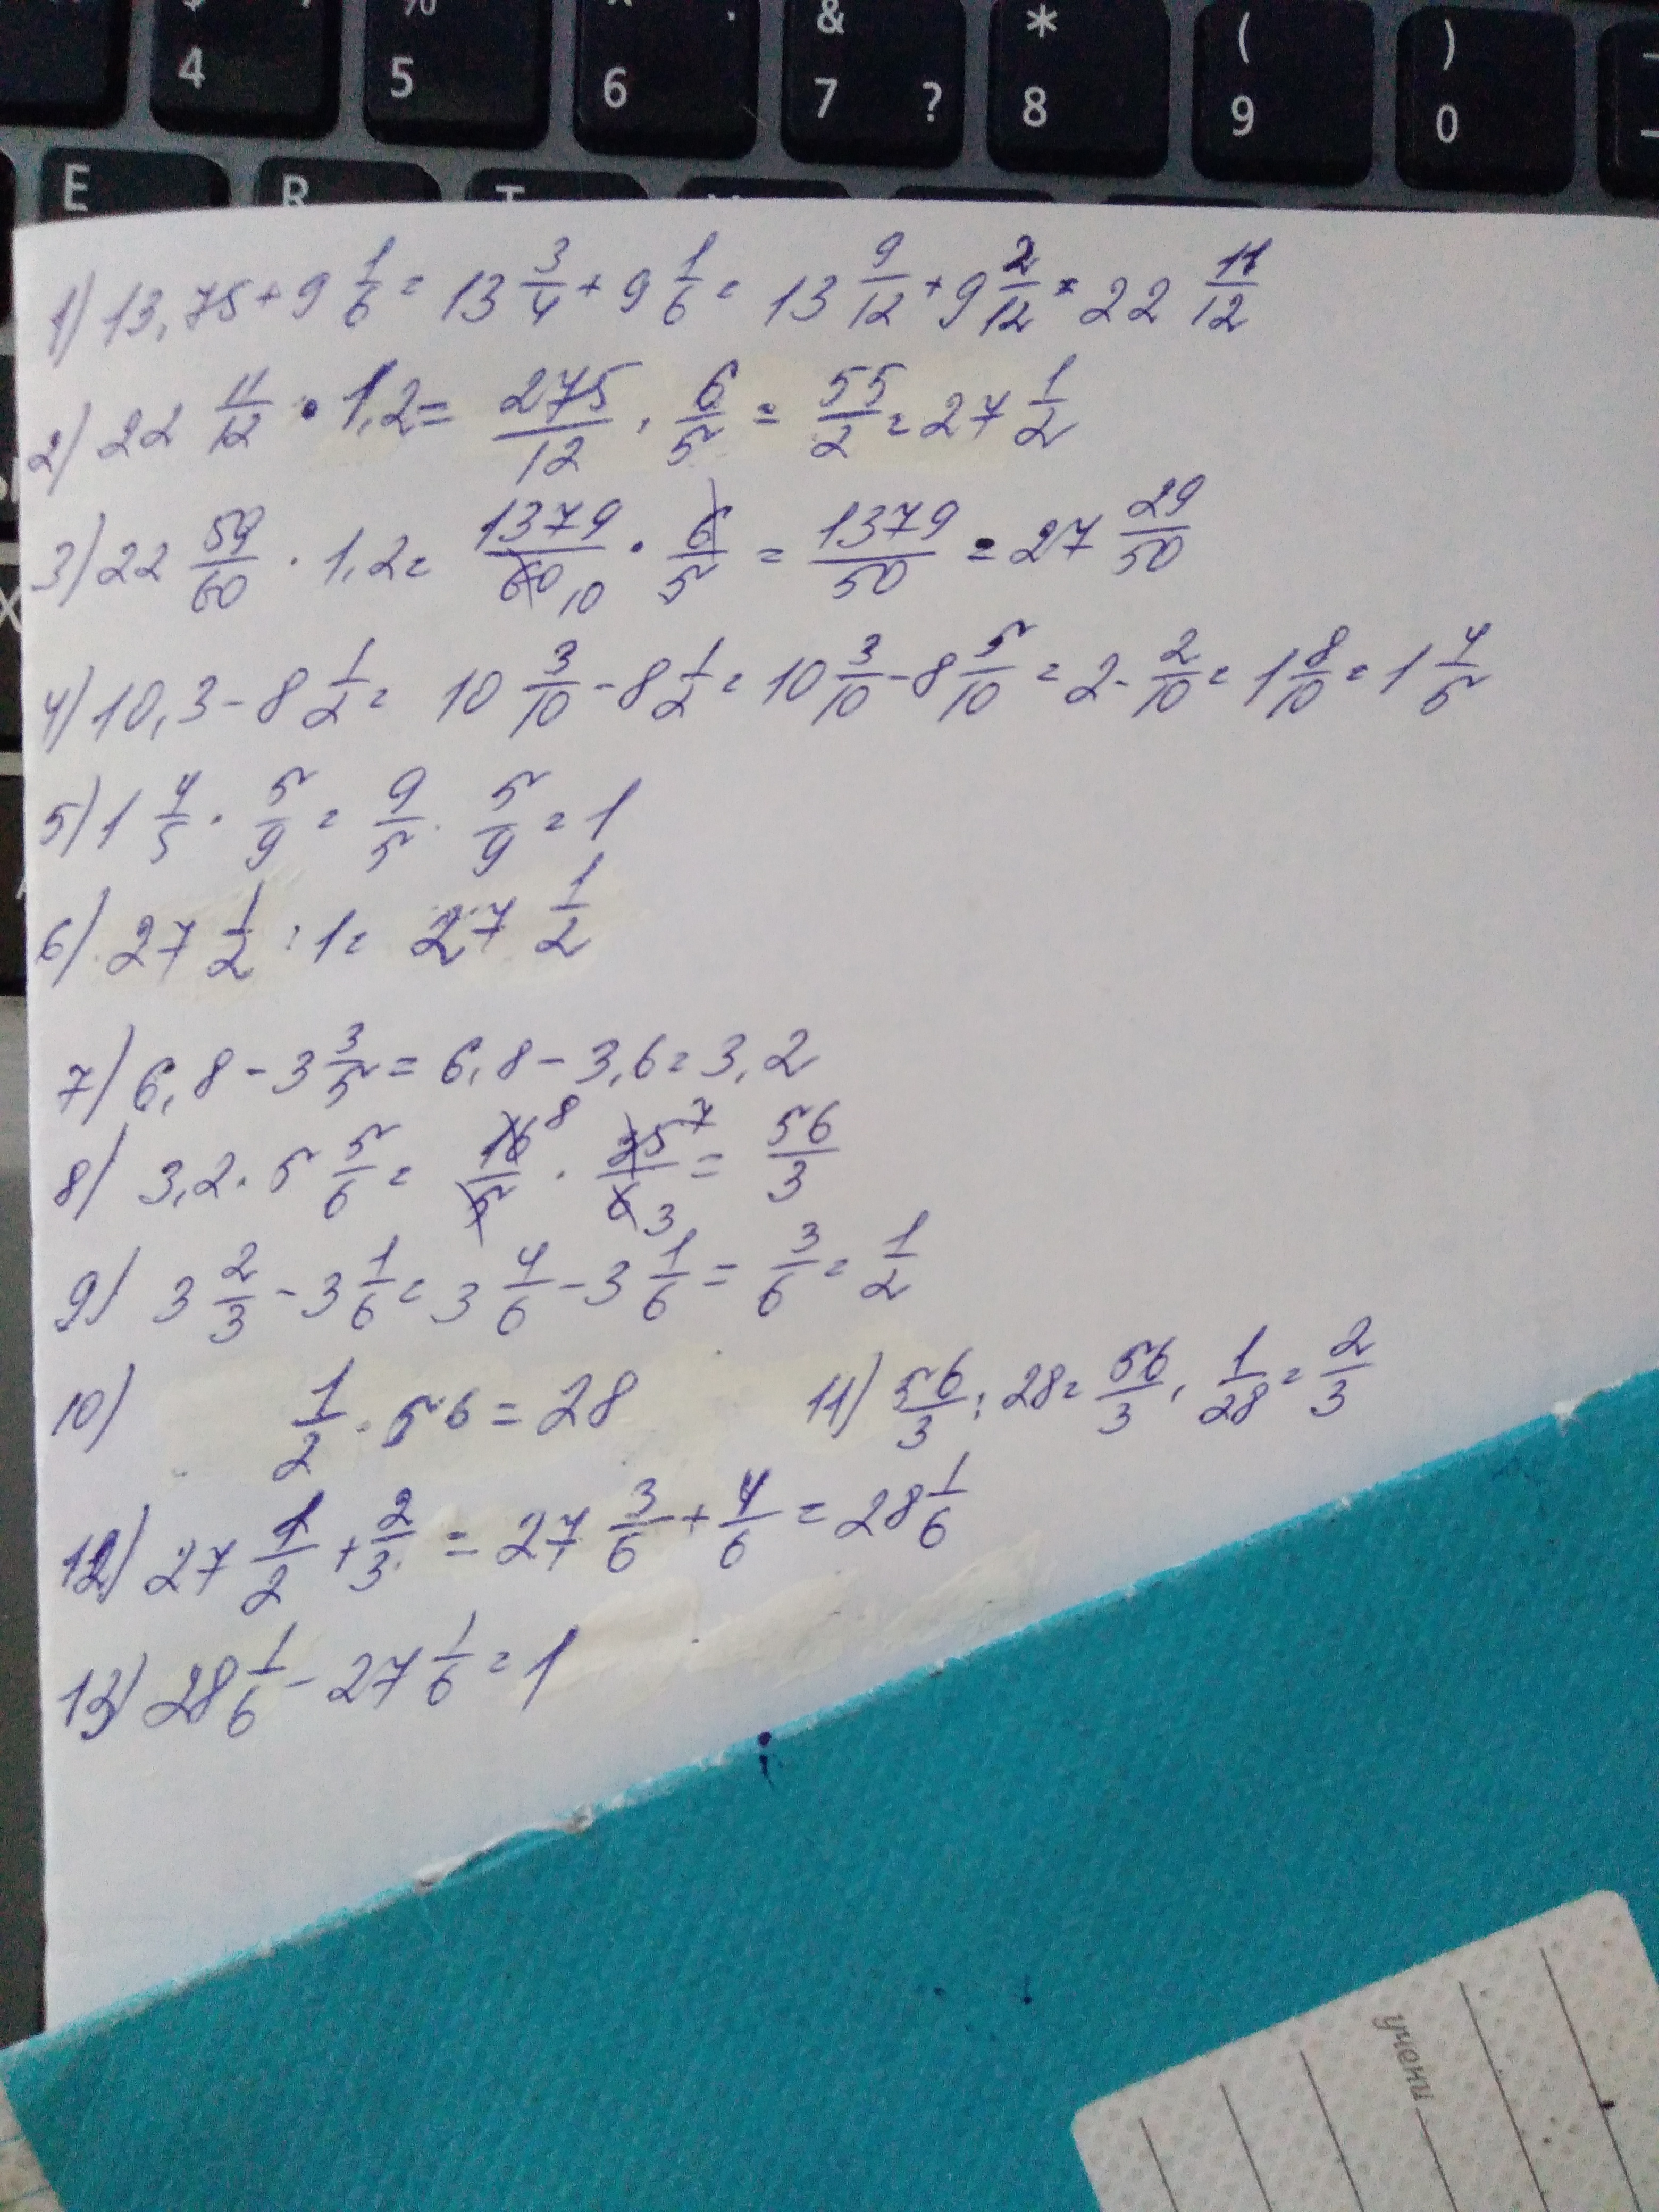 4 5 6 & 7 ? * 8 ( 9 ) 0
E R
1) 13,75 + 9 1/6 = 13 3/4 + 9 1/6 = 13 9/12 + 9 2/12 = 22 11/12
2) 22 11/12 · 1,2 = 275/12 · 6/5 = 55/2 = 27 1/2
3) 22 59/60 · 1,2 = 1379/60 10 · 6/5 = 1379/50 = 27 29/50
4) 10,3 - 8 1/2 = 10 3/10 - 8 1/2 = 10 3/10 - 8 5/10 = 2 - 2/10 = 1 8/10 = 1 4/5
5) 1 4/5 · 5/9 = 9/5 · 5/9 = 1
6) 27 1/2 : 1 = 27 1/2
7) 6,8 - 3 3/5 = 6,8 - 3,6 = 3,2
8) 3,2 · 5 5/6 = 16 8/5 · 35 7/6 3 = 56/3
9) 3 2/3 - 3 1/6 = 3 4/6 - 3 1/6 = 3/6 = 1/2
10) 1/2 · 56 = 28 11) 56/3 : 28 = 56/3 · 1/28 = 2/3
12) 27 1/2 + 2/3 = 27 3/6 + 4/6 = 28 1/6
13) 28 1/6 - 27 1/6 = 1
учени